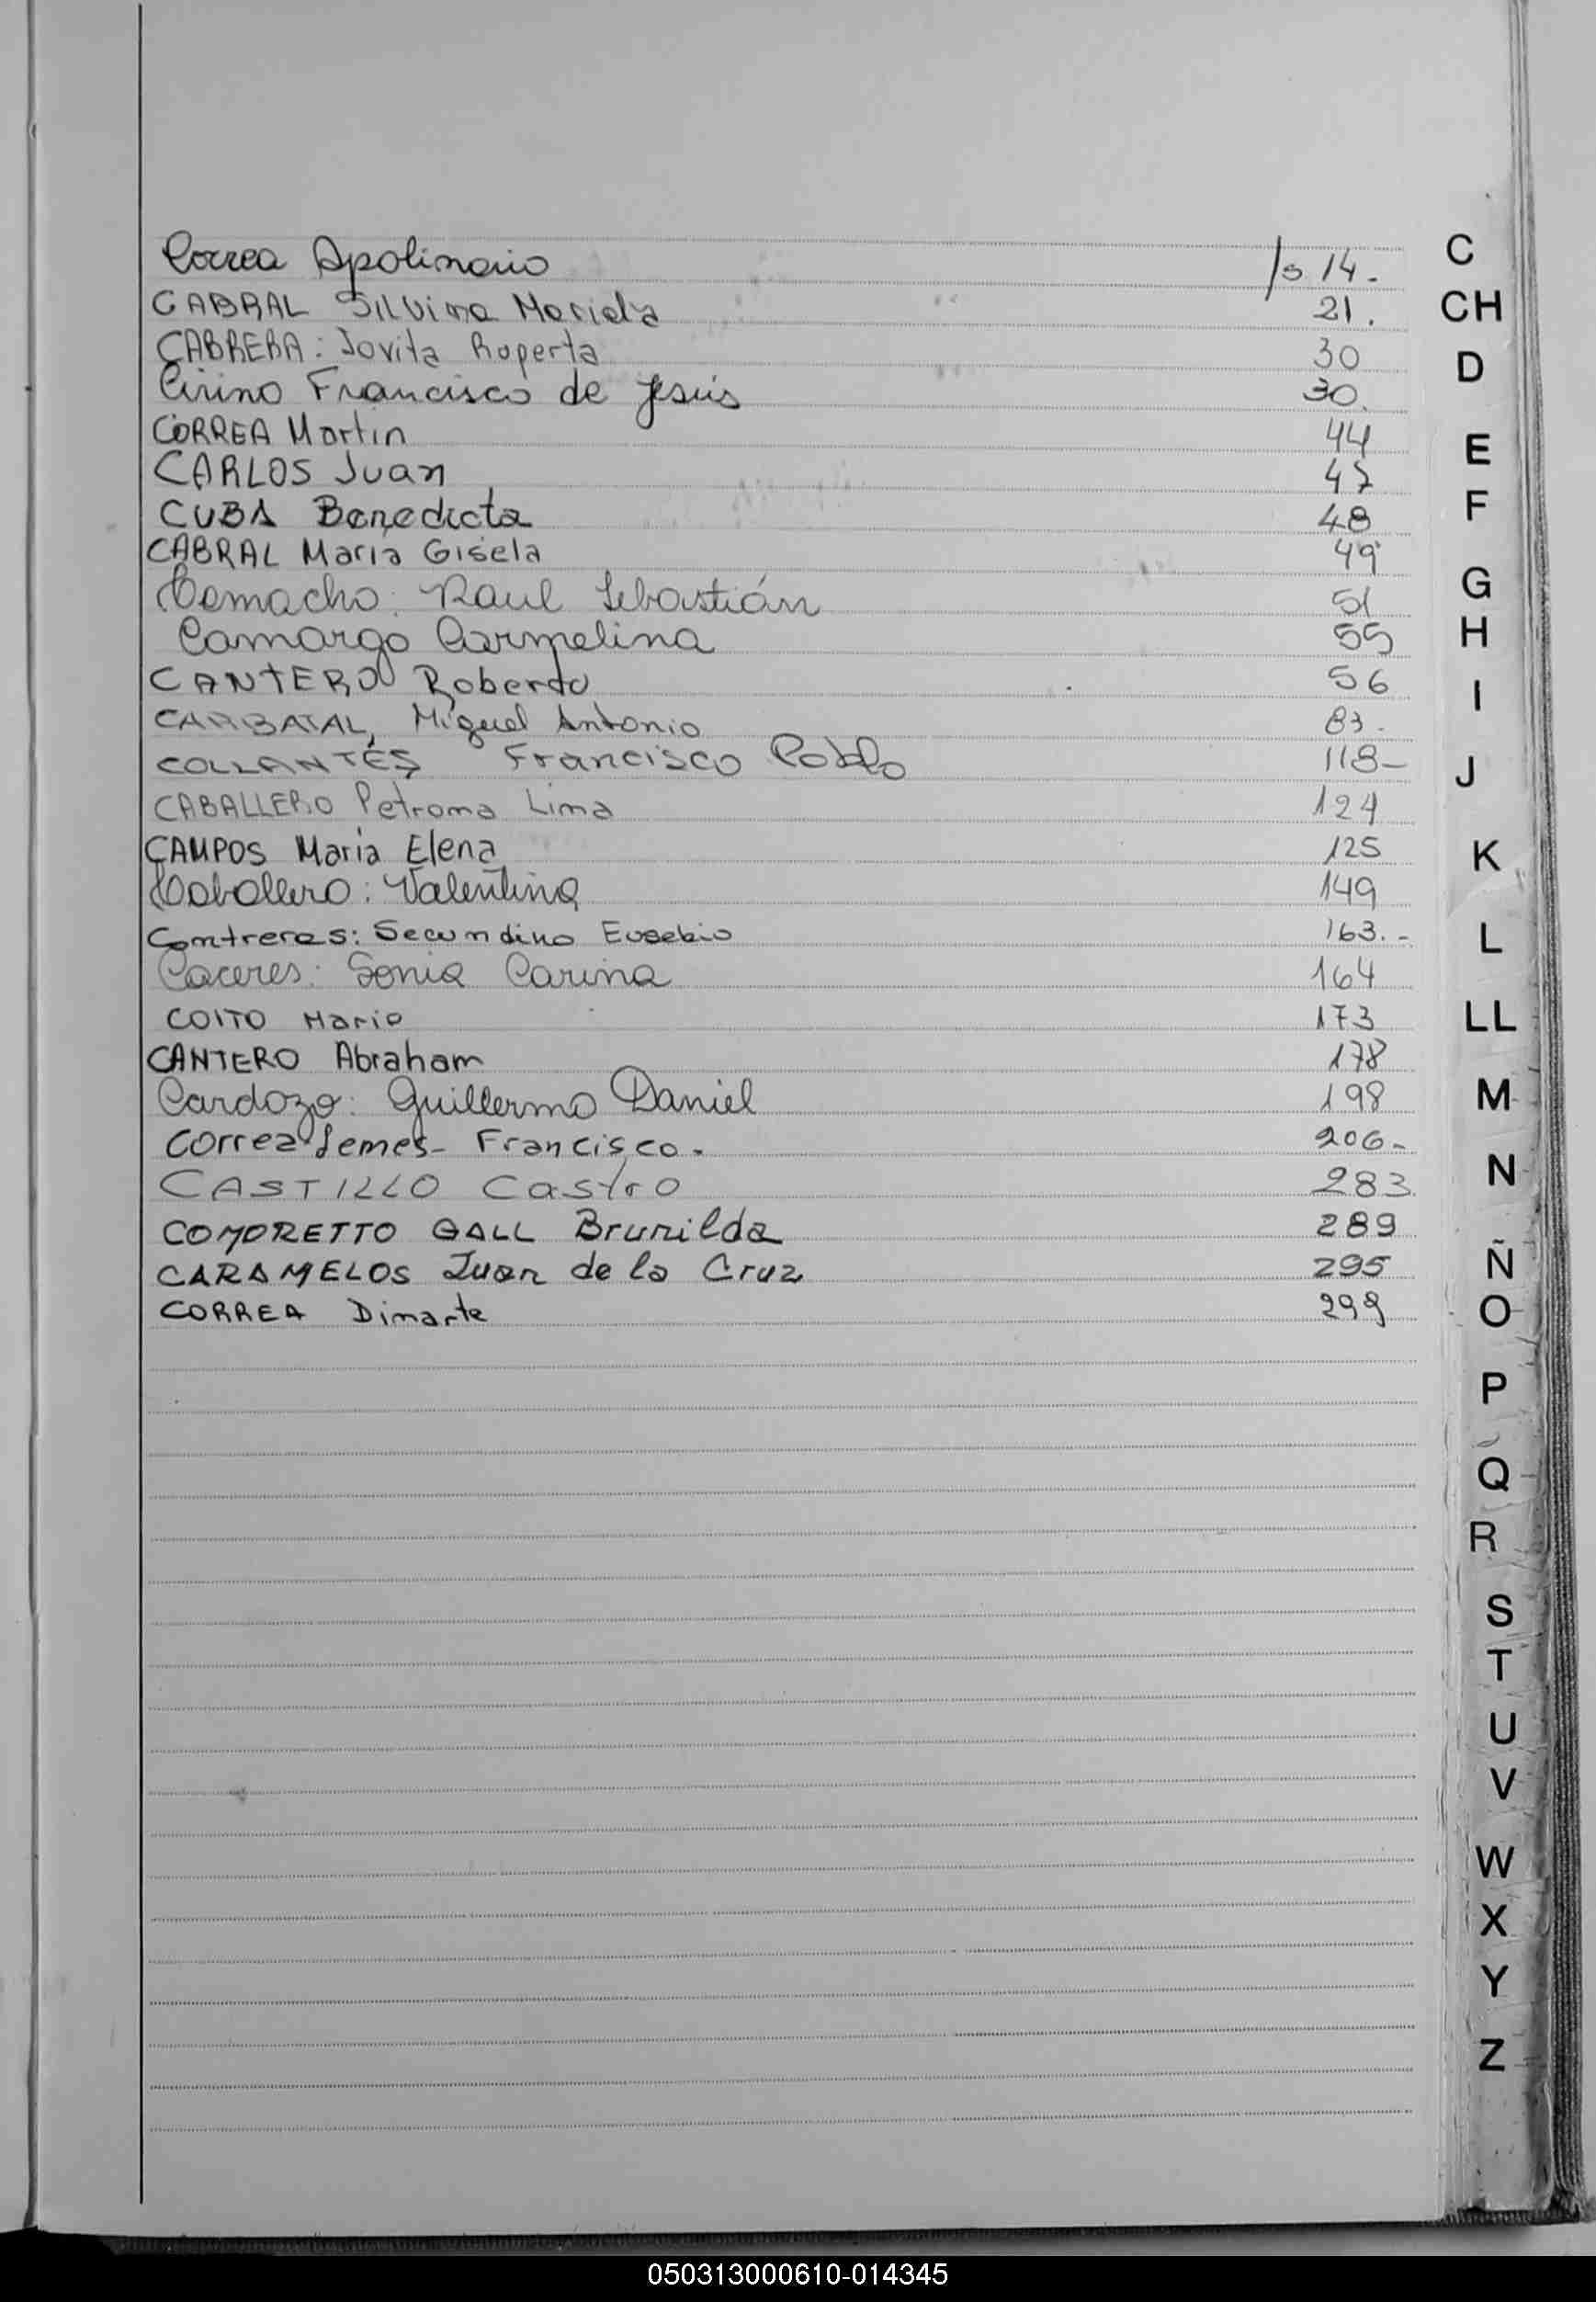 Correa Apolinario /s 14.-
CABRAL SILVina Mariela 21.
CABRERA: Jovita Ruperta 30
Cirino Francisco de Jesús 30.
CORREA Martin 44
CARLOS Juan 47
CUBA Benedicta 48
CABRAL María Gisela 49
Camacho: Raul Sebastián 51
Camargo Carmelina 55
CANTERO Roberto 56
CARBAJAL, Miguel Antonio 83.-
COLLANTES Francisco Pablo 118-
CABALLERO Petrona Lina 124
CAMPOS María Elena 125
Caballero: Valentina 149
Contreras: Secundino Eusebio 163.-
Caceres: Sonia Carina 164
COITO Mario 173
CANTERO Abraham 178
Cardozo: Guillermo Daniel 198
Correa Lemes- Francisco. 206-
CASTILLO Castro 283
COMORETTO GALL Brunilda 289
CARAMELOS Juan de la Cruz 295
CORREA Dinarte 299
C
CH
D
E
F
G
H
I
J
K
L
LL
M
N
Ñ
O
P
Q
R
S
T
U
V
W
X
Y
Z
050313000610-014345